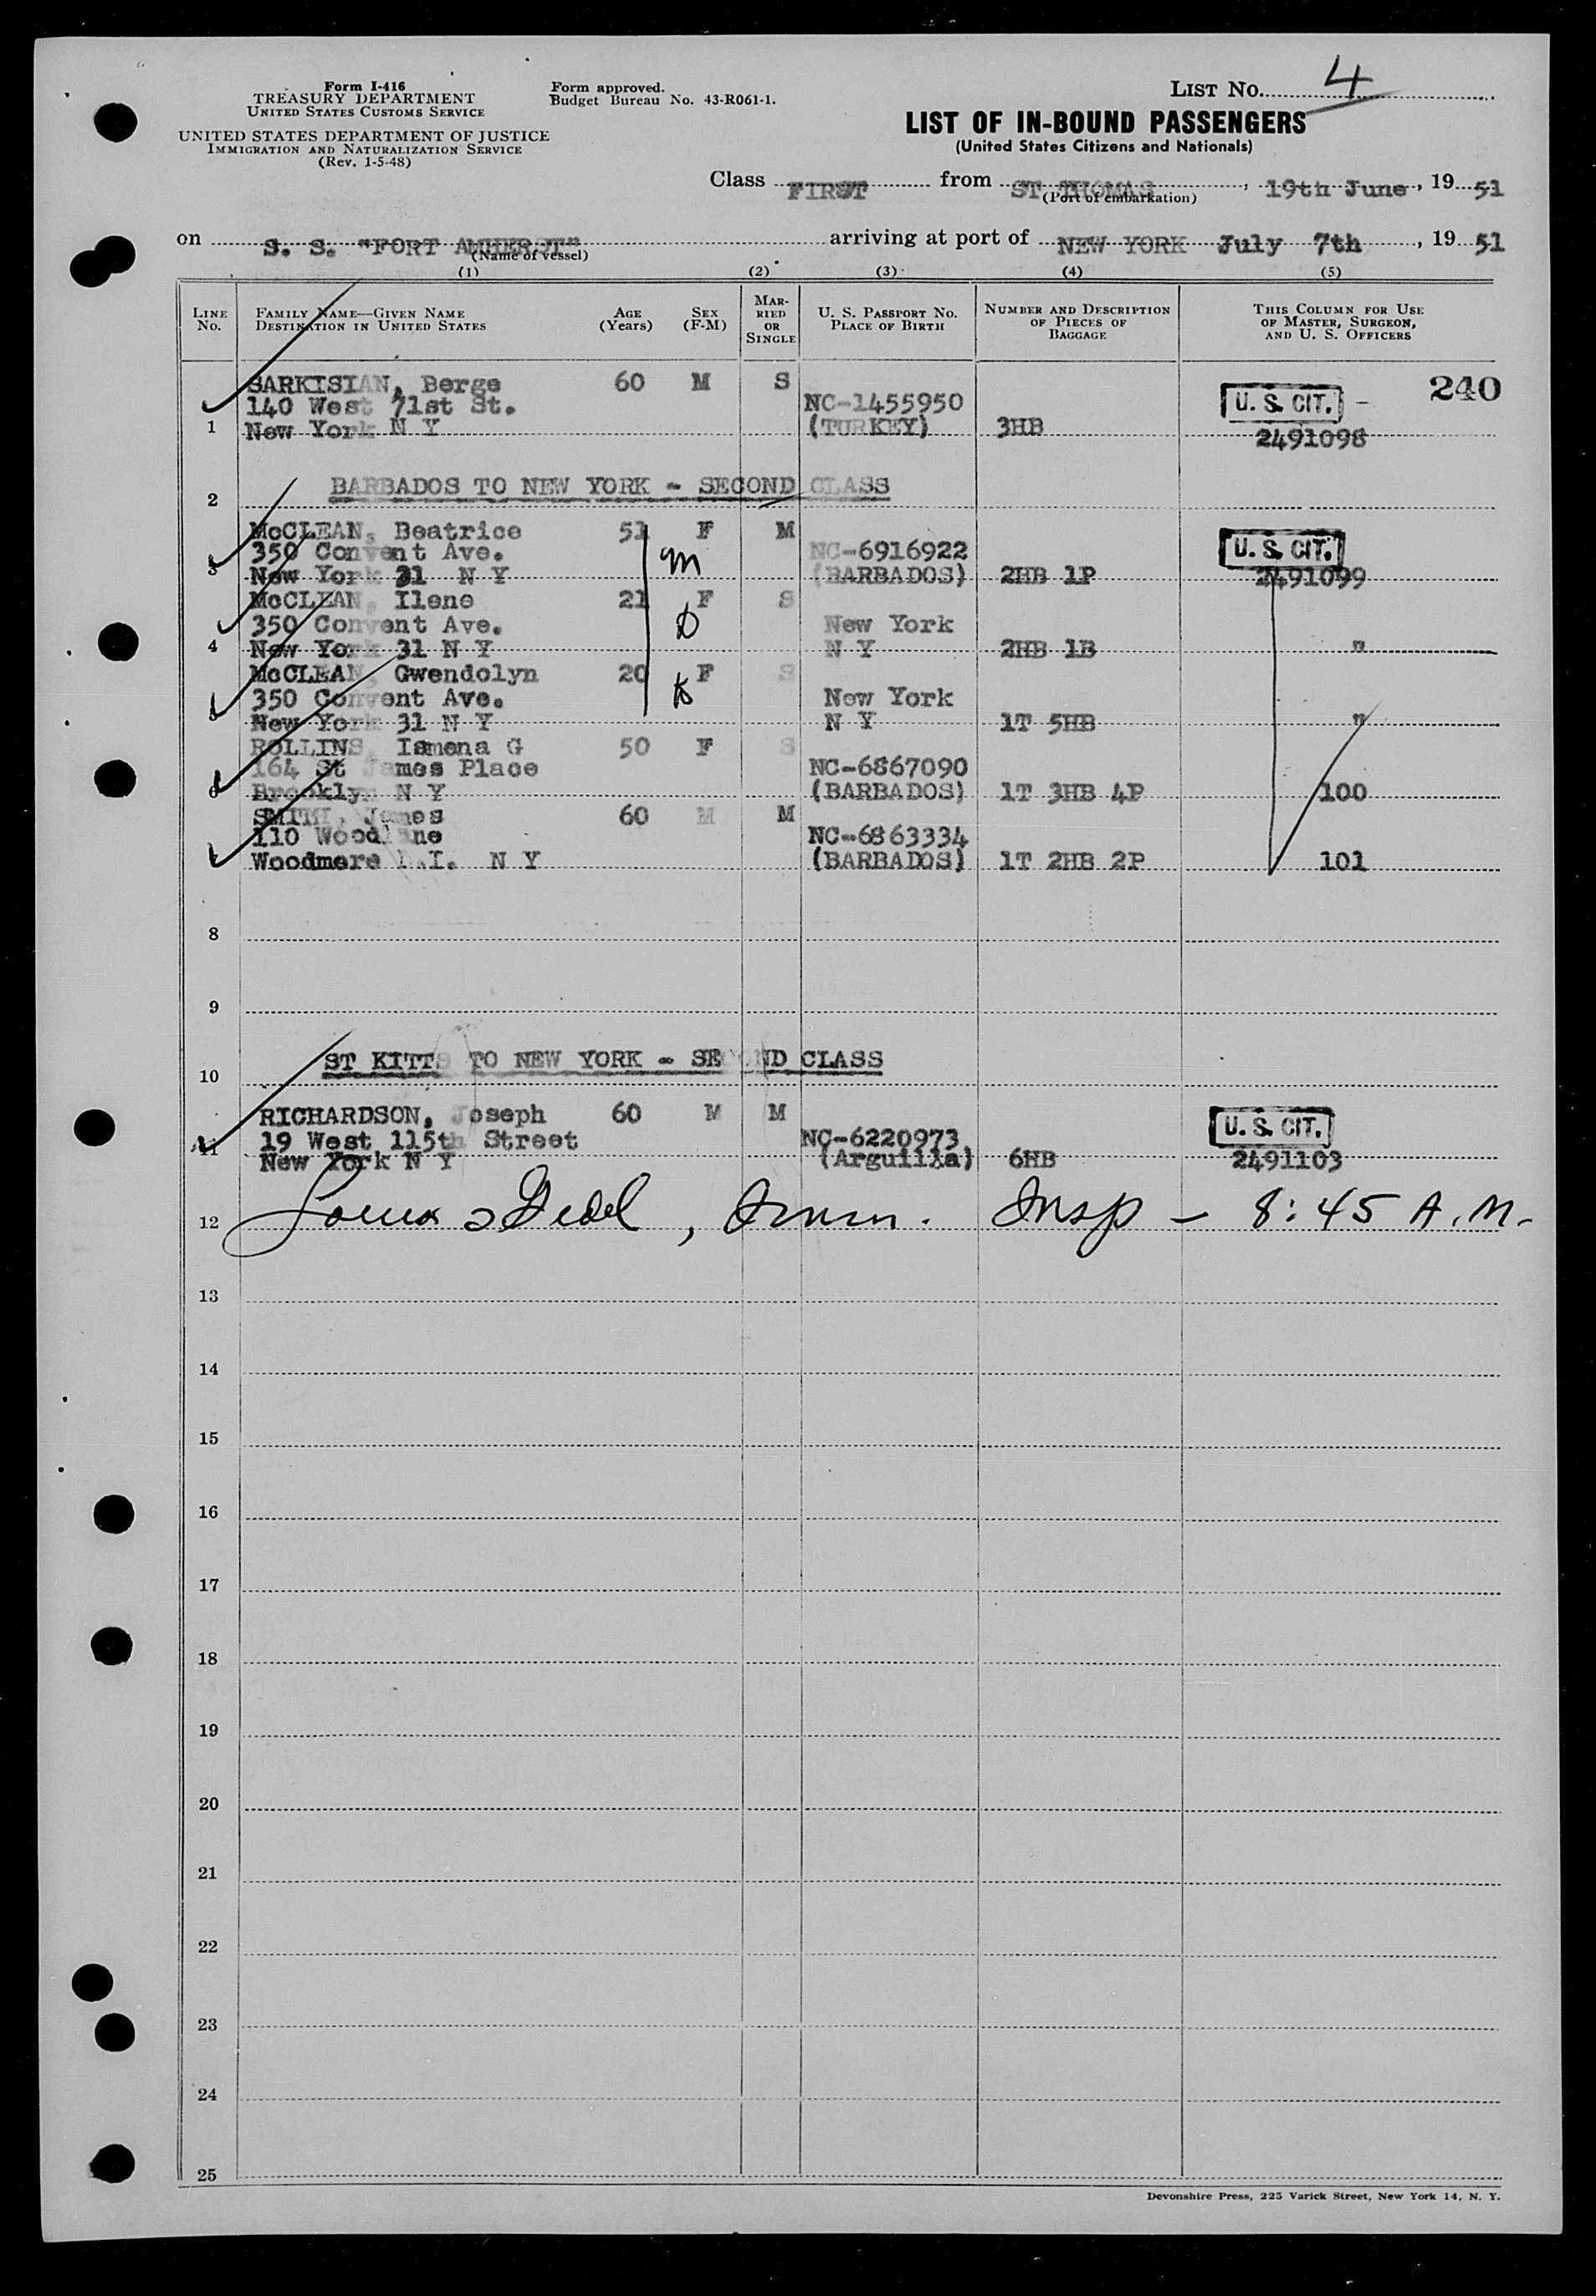 Form I-416
TREASURY DEPARTMENT
UNITED STATES CUSTOMS SERVICE
UNITED STATES DEPARTMENT OF JUSTICE
IMMIGRATION AND NATURALIZATION SERVICE
(Rev. 1-5-48)
Form approved.
Budget Bureau No. 43-R061-1.
LIST No. 4
LIST OF IN-BOUND PASSENGERS
(United States Citizens and Nationals)
Class FIRST from ST THOMAS, 19th June, 19 51
(Port of embarkation)
on S. S. "FORT AMHERST" arriving at port of NEW YORK July 7th, 19 51
(Name of vessel)
(1) (2) (3) (4) (5)
LINE No. FAMILY NAME—GIVEN NAME DESTINATION IN UNITED STATES AGE (Years) SEX (F-M) MARRIED OR SINGLE U. S. PASSPORT NO. PLACE OF BIRTH NUMBER AND DESCRIPTION OF PIECES OF BAGGAGE THIS COLUMN FOR USE OF MASTER, SURGEON, AND U. S. OFFICERS
SARKISIAN, Berge 60 M S 240
140 West 71st St. NC-1455950 U. S. CIT. -
1 New York N Y (TURKEY) 3HB 2491098
2 BARBADOS TO NEW YORK - SECOND CLASS
McCLEAN, Beatrice 51 F M
350 Convent Ave. m NC-6916922 U. S. CIT.
3 New York 31 N Y (BARBADOS) 2HB 1P 2491099
McCLEAN, Ilene 21 F S
350 Convent Ave. D New York
4 New York 31 N Y N Y 2HB 1B "
McCLEAN, Gwendolyn 20 F S
350 Convent Ave. New York
5 New York 31 N Y N Y 1T 5HB "
ROLLINS, Ismena G 50 F S
164 St James Place NC-6867090
6 Brooklyn N Y (BARBADOS) 1T 3HB 4P 100
SMITH, James 60 M M
110 Woodlane NC-6863334
7 Woodmere L.I. N Y (BARBADOS) 1T 2HB 2P 101
8
9
10 ST KITTS TO NEW YORK - SECOND CLASS
RICHARDSON, Joseph 60 M M
19 West 115th Street NC-6220973 U. S. CIT.
11 New York N Y (Arguilla) 6HB 2491103
12 , Imm. Insp - 8:45 A.M.
13
14
15
16
17
18
19
20
21
22
23
24
25
Devonshire Press, 225 Varick Street, New York 14, N. Y.